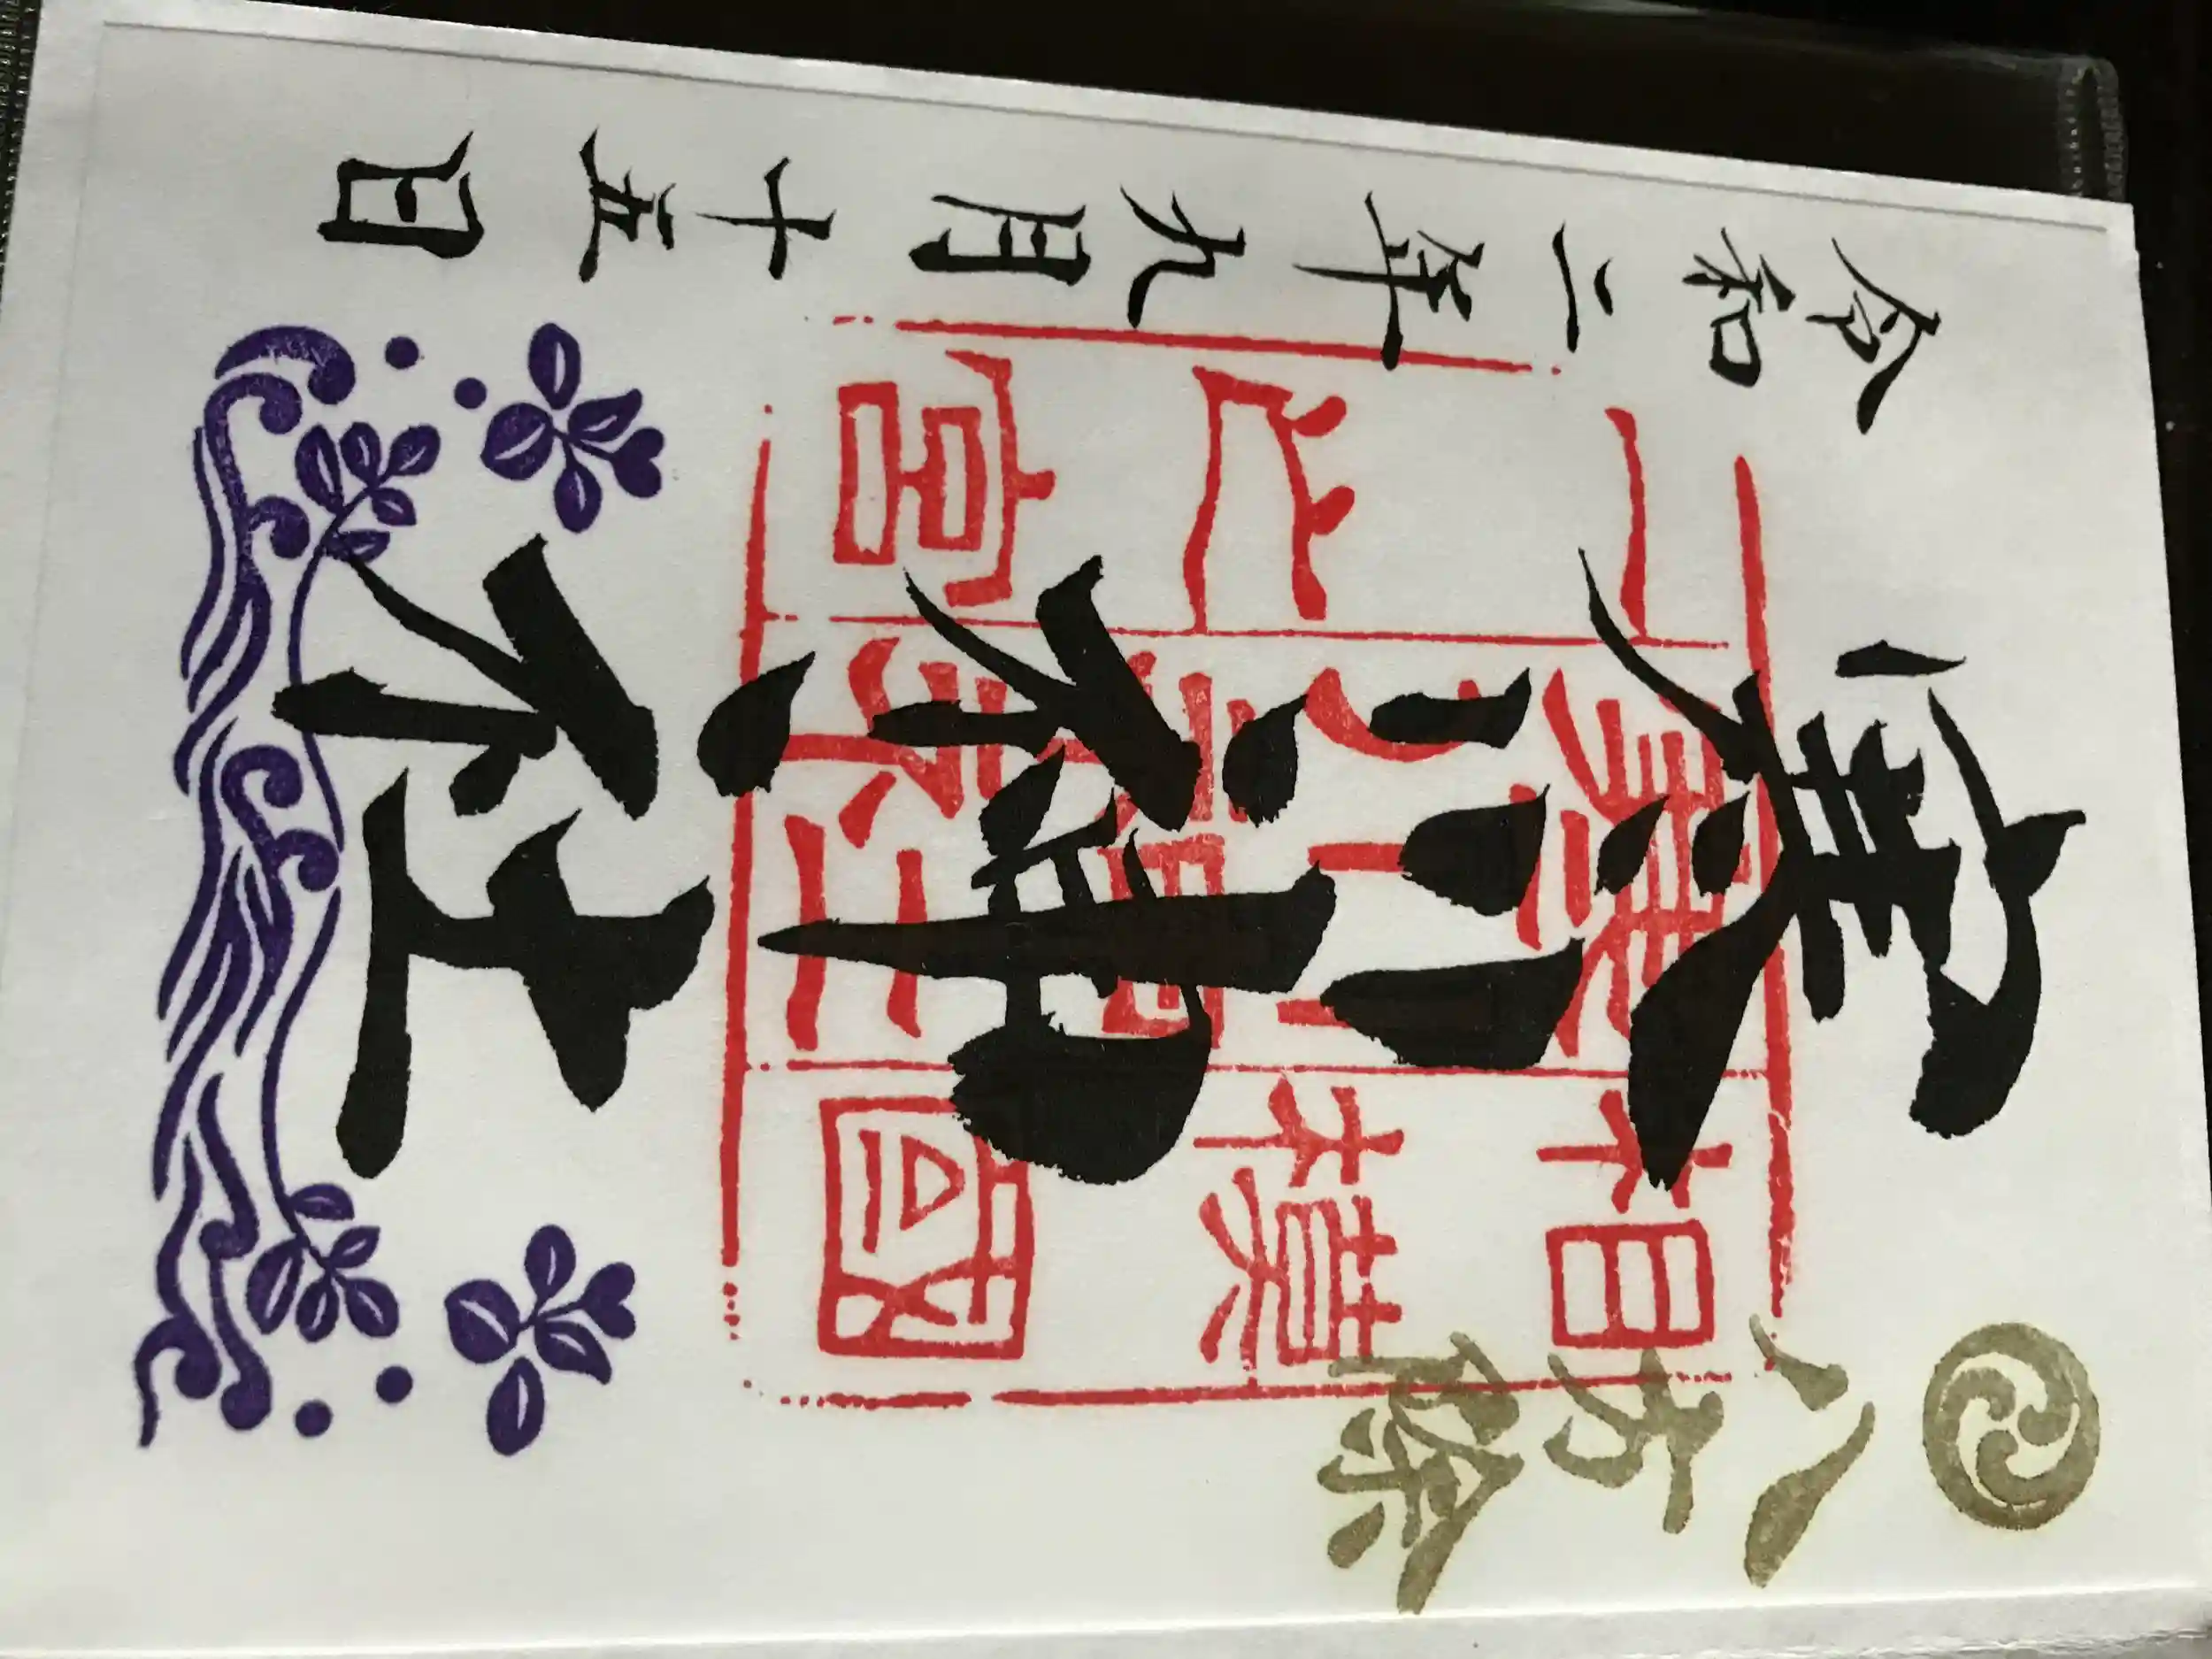 八方除
寒川神社
令和二年九月十五日
相模國
寒川神社
一之宮